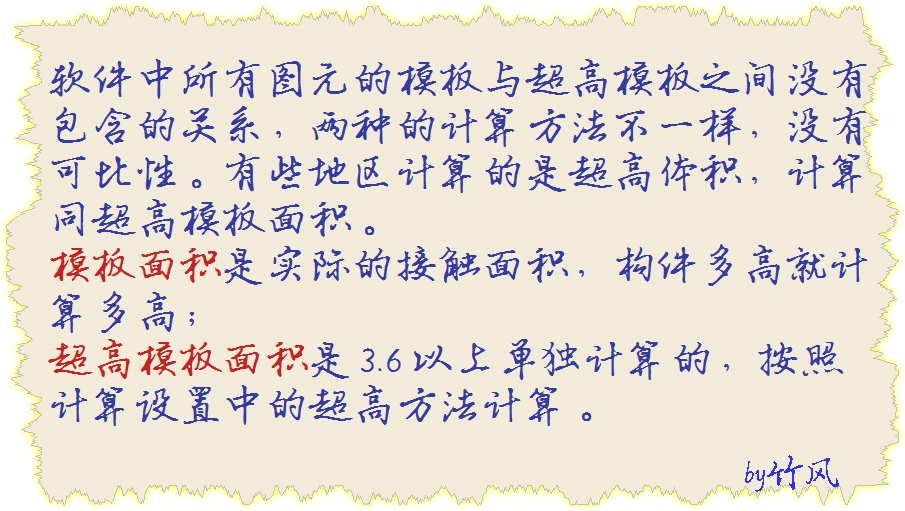 软件中所有图元的模板与超高模板之间没有
包含的关系，两种的计算方法不一样，没有
可比性。有些地区计算的是超高体积，计算
同超高模板面积。
模板面积是实际的接触面积，构件多高就计
算多高；
超高模板面积是3.6以上单独计算的，按照
计算设置中的超高方法计算。
by竹风